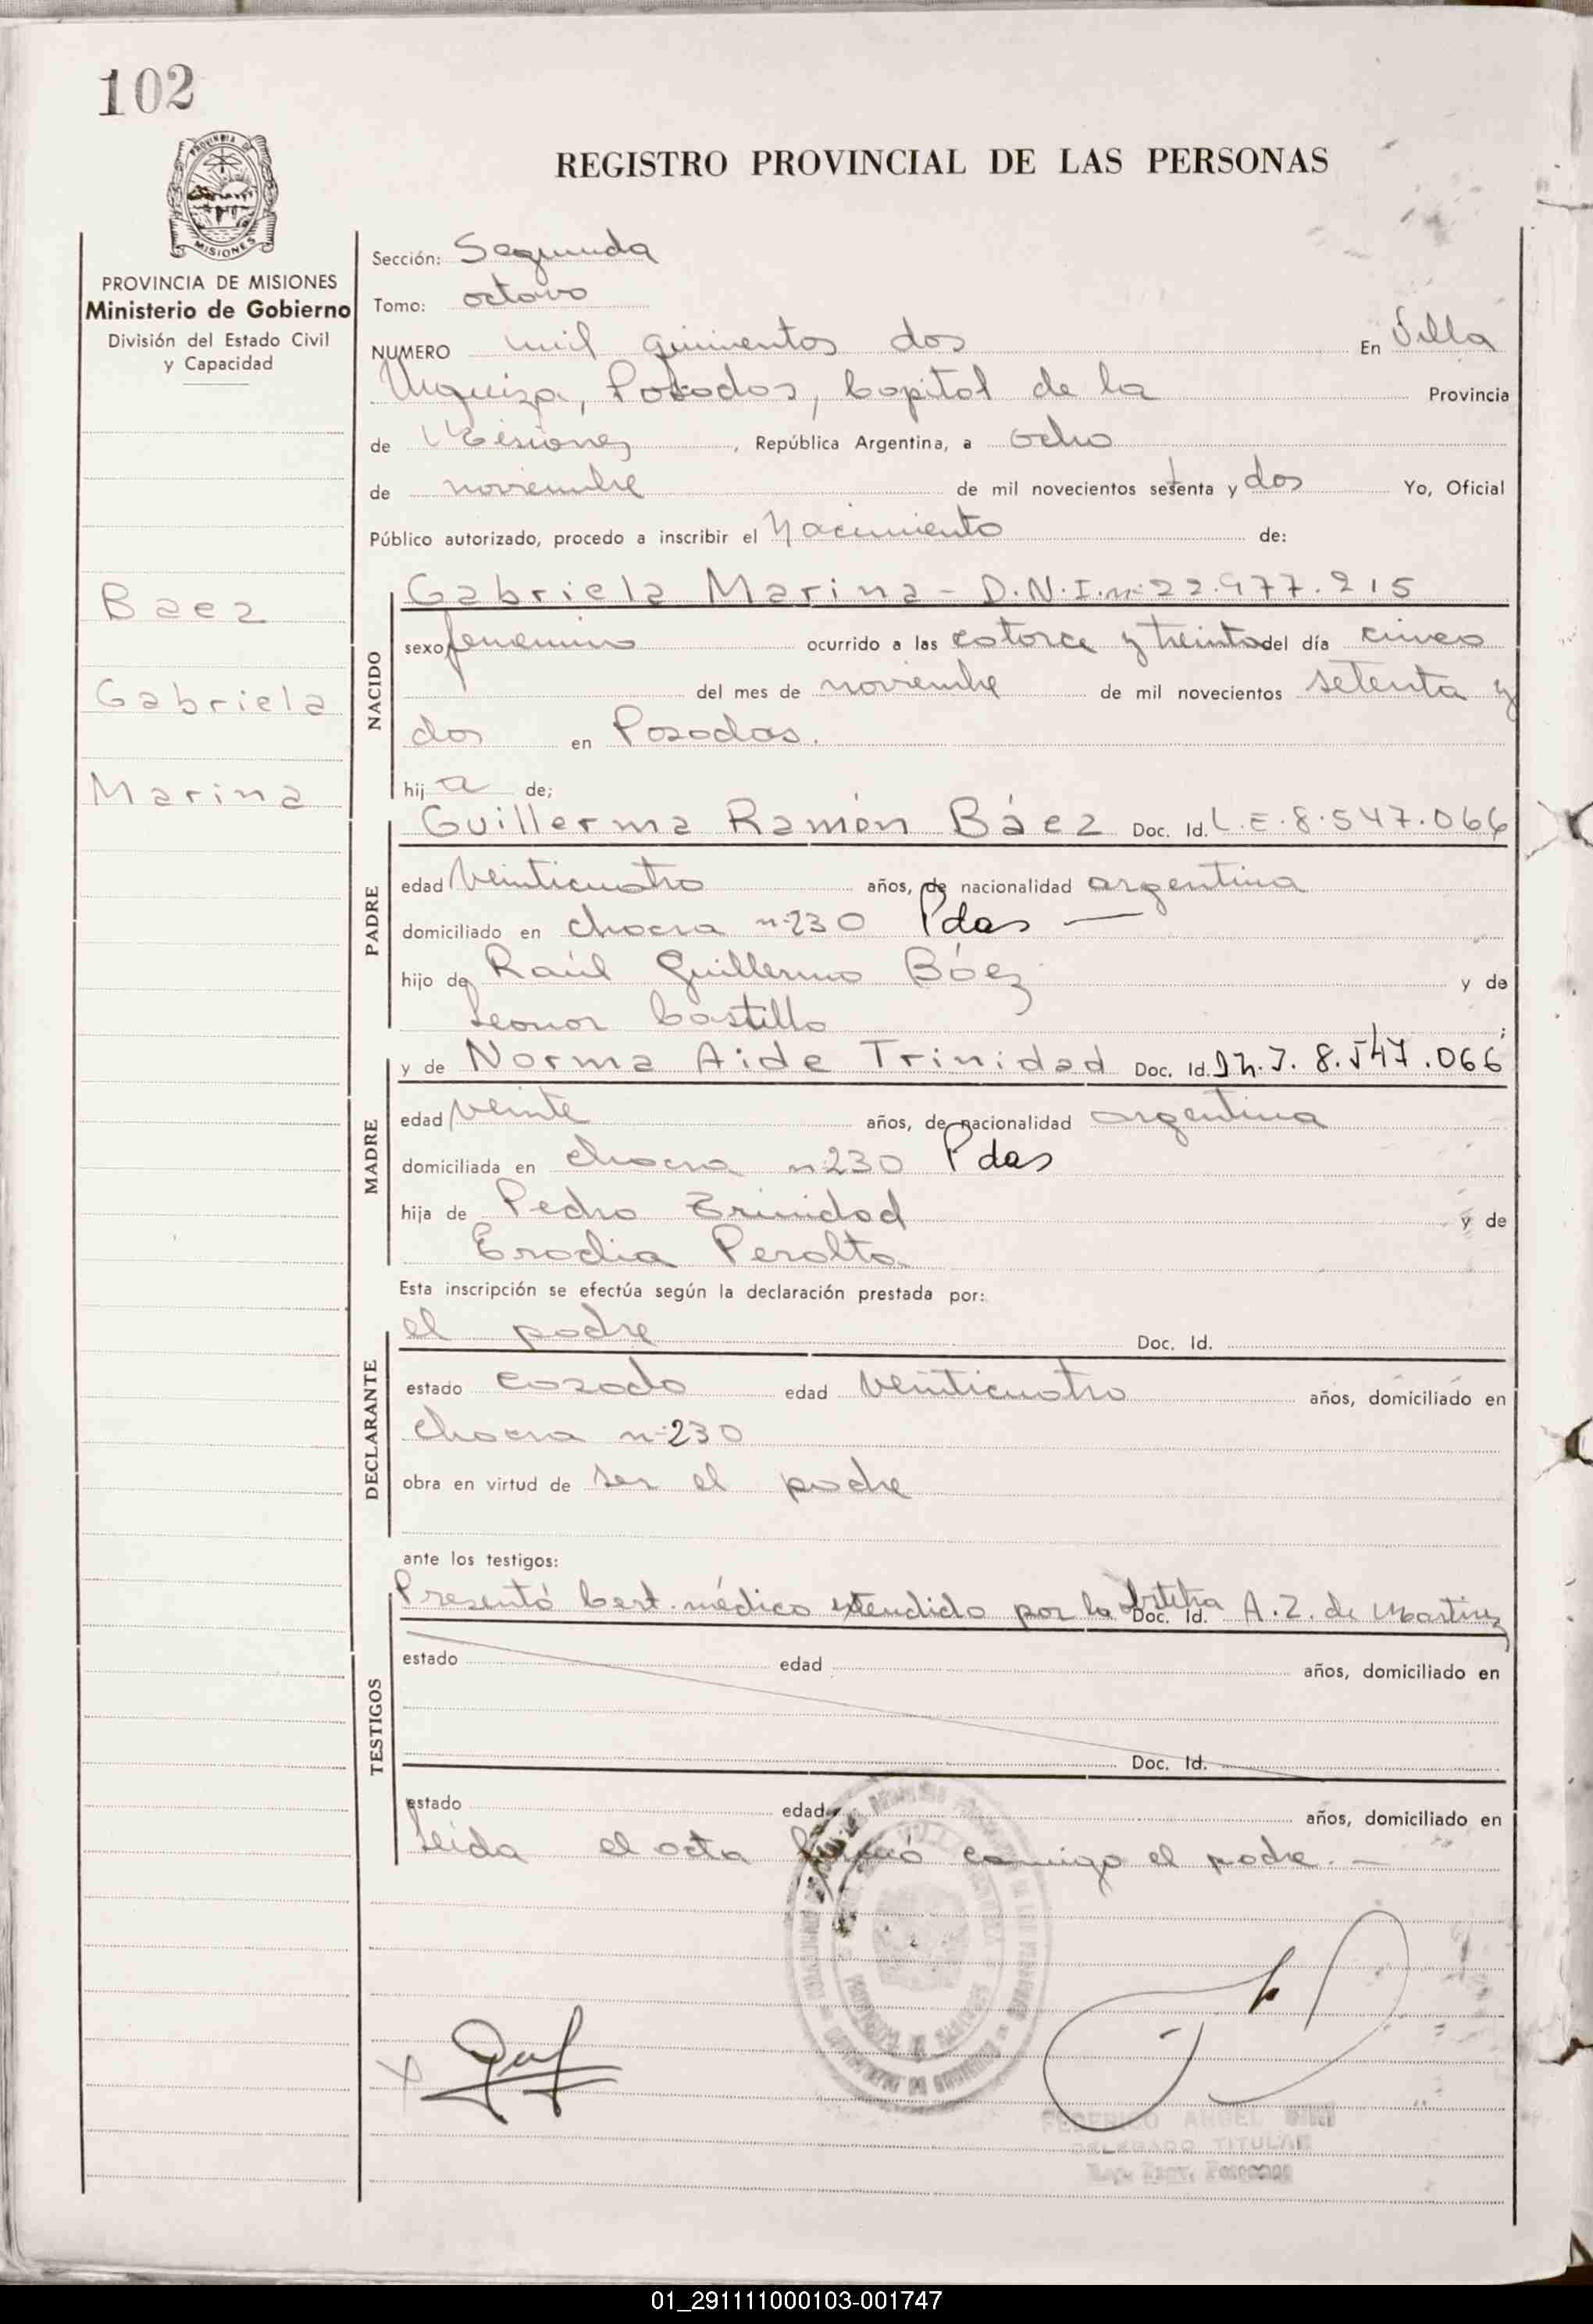 102
PROVINCIA DE
MISIONES
REGISTRO PROVINCIAL DE LAS PERSONAS
PROVINCIA DE MISIONES
Ministerio de Gobierno
División del Estado Civil
y Capacidad
Baez
Gabriela
Marina
Sección: Segunda
Tomo: octavo
NUMERO mil quinientos dos En Villa
Urquiza, Posadas, Capital de la Provincia
de Misiones, República Argentina, a ocho
de noviembre de mil novecientos setenta y dos Yo, Oficial
Público autorizado, procedo a inscribir el Nacimiento de:
NACIDO
Gabriela Marina - D.N.I. nº 22.977.215
sexo femenino ocurrido a las catorce y treinta del día cinco
del mes de noviembre de mil novecientos setenta y
dos en Posadas.
hij a de;
PADRE
Guillermo Ramón Báez Doc. Id. L.E. 8.547.066
edad veinticuatro años, de nacionalidad argentina
domiciliado en chacra nº 230 Pdas —
hijo de Raúl Guillermo Báez y de
Leonor Castillo ;
MADRE
y de Norma Aide Trinidad Doc. Id. 8.547.066
edad veinte años, de nacionalidad argentina
domiciliada en chacra nº 230 Pdas
hija de Pedro Trinidad y de
Erodia Peralta
Esta inscripción se efectúa según la declaración prestada por:
DECLARANTE
el padre Doc. Id.
estado casado edad veinticuatro años, domiciliado en
chacra nº 230
obra en virtud de ser el padre
ante los testigos:
TESTIGOS
Presentó Cert. médico extendido por la Doc. Id. A. Z. de Martinez
estado edad años, domiciliado en
Doc. Id.
estado edad años, domiciliado en
Leida el acta firmó conmigo el padre. —
FEDERICO ANGEL
DELEGADO TITULAR
01_291111000103-001747